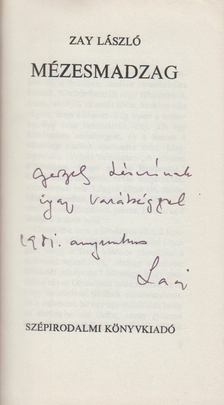 ZAY LÁSZLÓ
MÉZESMADZAG
Gergely
igaz barátsággal
1981. augusztus
Laci
SZÉPIRODALMI KÖNYVKIADÓ